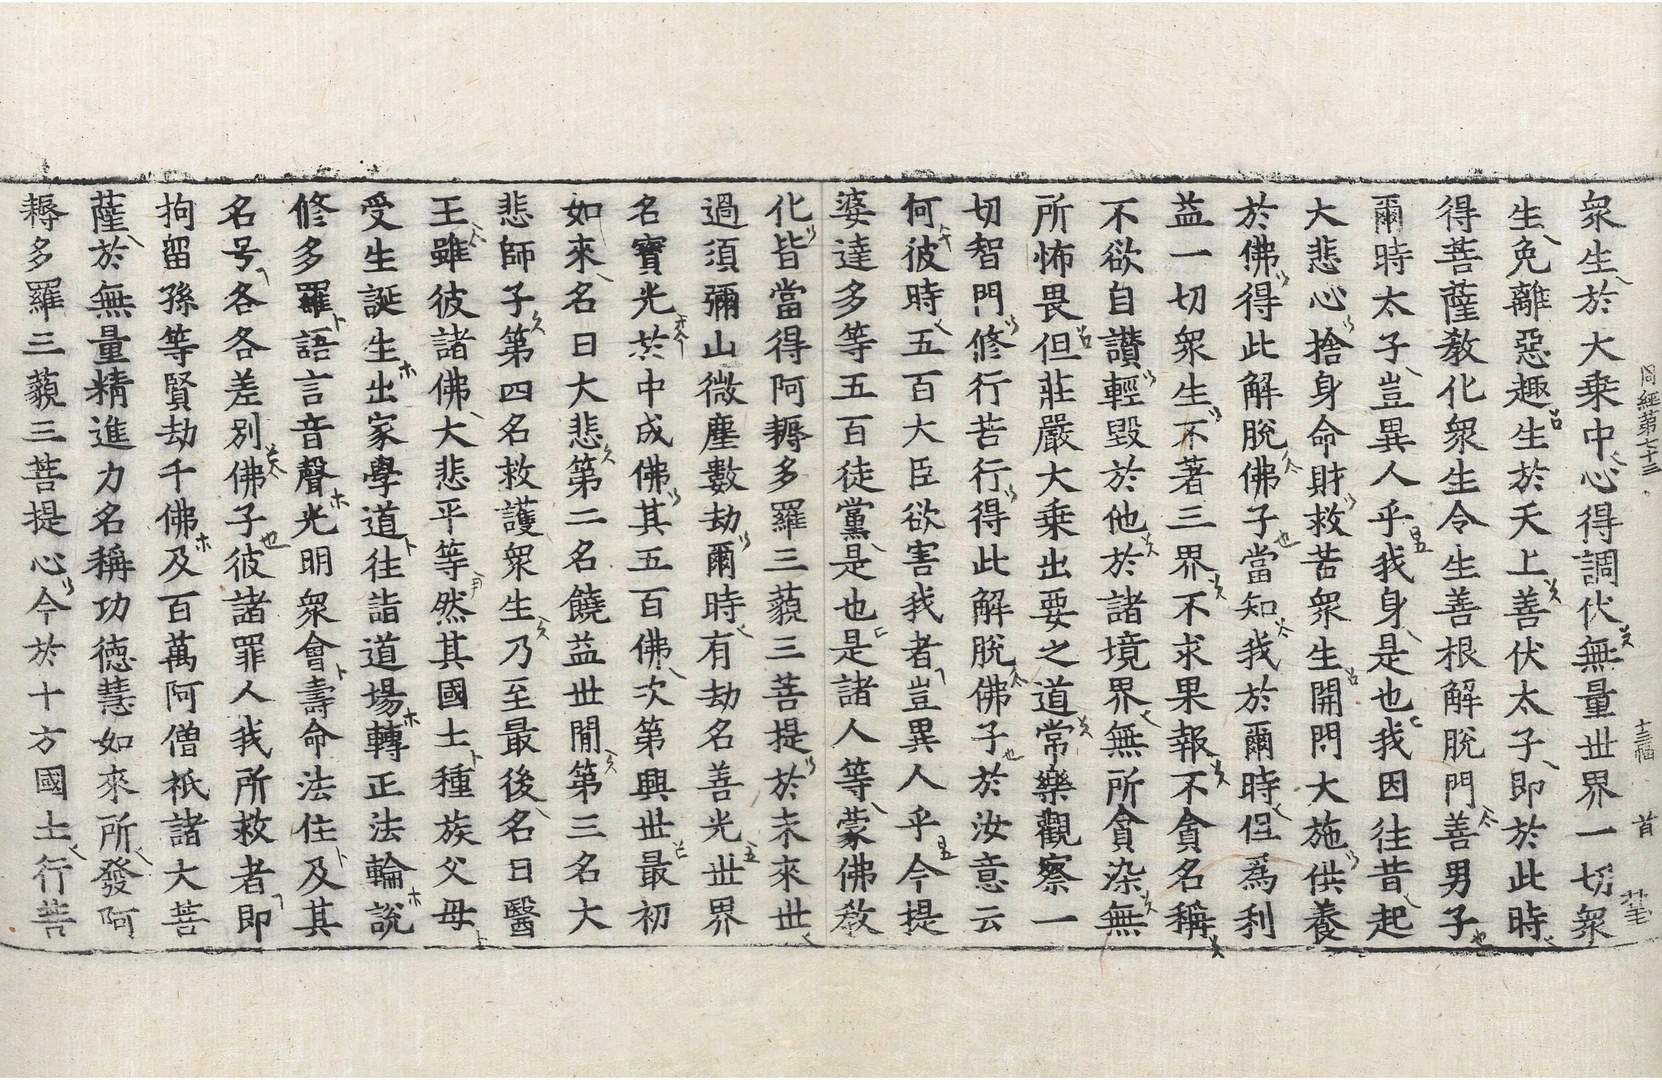 周經第七十三 十三幅 首
眾生於大乘中心得調伏無量世界一切眾
生免離惡趣生於天上善伏太子即於此時
得菩薩教化眾生令生善根解脫門善男子
爾時太子豈異人乎我身是也我因往昔起
大悲心捨身命財救苦眾生開門大施供養
於佛得此解脫佛子當知我於爾時但為利
益一切眾生不著三界不求果報不貪名稱
不欲自讚輕毀於他於諸境界無所貪染無
所怖畏但莊嚴大乘出要之道常樂觀察一
切智門修行苦行得此解脫佛子於汝意云
何彼時五百大臣欲害我者豈異人乎今提
婆達多等五百徒黨是也是諸人等蒙佛教
化皆當得阿耨多羅三藐三菩提於未來世
過須彌山微塵數劫爾時有劫名善光世界
名寶光於中成佛其五百佛次第興世最初
如來名曰大悲第二名饒益世間第三名大
悲師子第四名救護眾生乃至最後名曰醫
王雖彼諸佛大悲平等然其國土種族父母
受生誕生出家學道往詣道場轉正法輪說
修多羅語言音聲光明眾會壽命法住及其
名号各各差別佛子彼諸罪人我所救者即
拘留孫等賢劫千佛及百萬阿僧祇諸大菩
薩於無量精進力名稱功德慧如來所發阿
耨多羅三藐三菩提心今於十方國土行菩